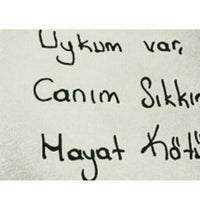 Uykum var,
Canım Sıkkın
Hayat Kötü